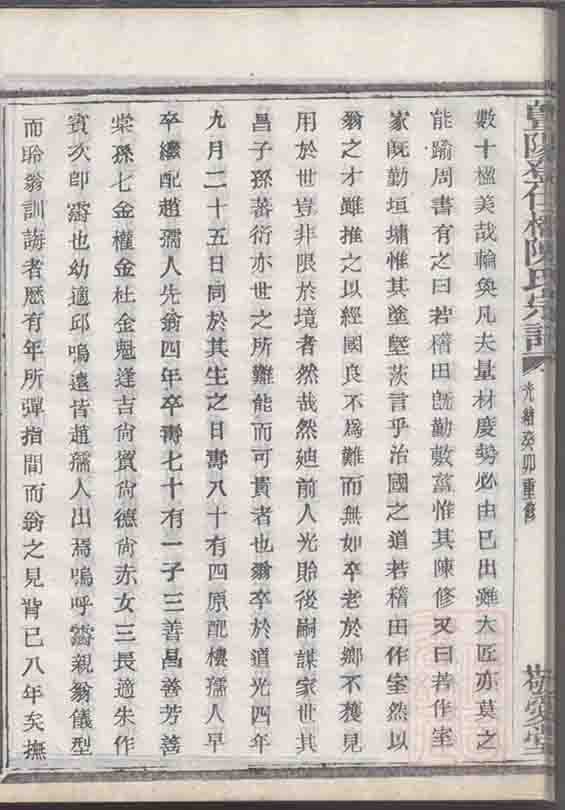 數十楹美哉輪奐凡夫量材度勢必由已出雖大匠亦莫之
能踰周書有之曰若稽田旣勤敷菑惟其陳修又曰若作室
家旣勤垣墉惟其塗墍茨言乎治國之道若稽田作室然以
翁之才雖推之以經國良不爲難而無如卒老於鄉不獲見
用於世豈非限於境者然哉然廸前人光貽後嗣謀家世其
昌子孫蕃衍亦世之所難能而可貴者也翁卒於道光四年
九月二十五日同於其生之日壽八十有四原配樓孺人早
卒繼配趙孺人先翁四年卒壽七十有一子三善昌善芳善
棠孫七金權金社金魁逢吉尙賓尙德尙赤女三長適朱作
賓次卽霨也幼適邱鳴遠皆趙孺人出焉嗚呼霨親翁儀型
而聆翁訓誨者歷有年所彈指間而翁之見背已八年矣撫
登仕橋陳氏宗譜
光緒癸卯重修
敬愛堂